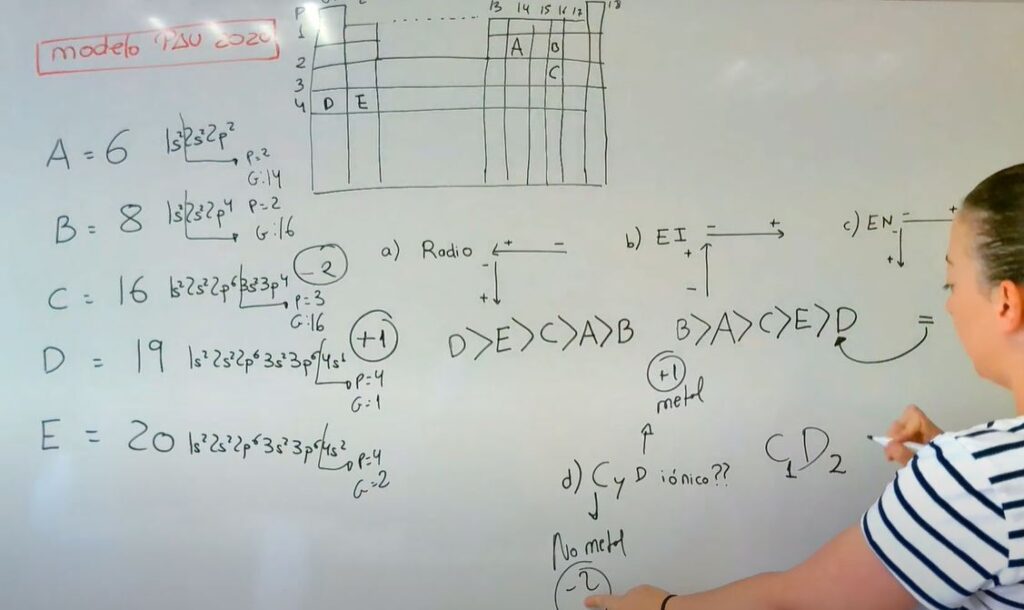 modelo PAU 202
P
13 14 15 16 17 18
1
A B
2
C
3
4 D E
A = 6 1s²2s²2p²
P=2
G:14
B = 8 1s²2s²2p⁴ P=2
G:16
C = 16 1s²2s²2p⁶3s²3p⁴ -2
P=3
G:16
D = 19 1s²2s²2p⁶3s²3p⁶4s¹ +1
P=4
G=1
E = 20 1s²2s²2p⁶3s²3p⁶4s²
P=4
G=2
a) Radio ← + -
- ↓ +
D>E>C>A>B
b) EI - + →
+ ↑ -
B>A>C>E>D =
c) EN - + →
- ↓ +
+1
metal
↑
d) C y D iónico??
↓
No metal
-2
C₁D₂